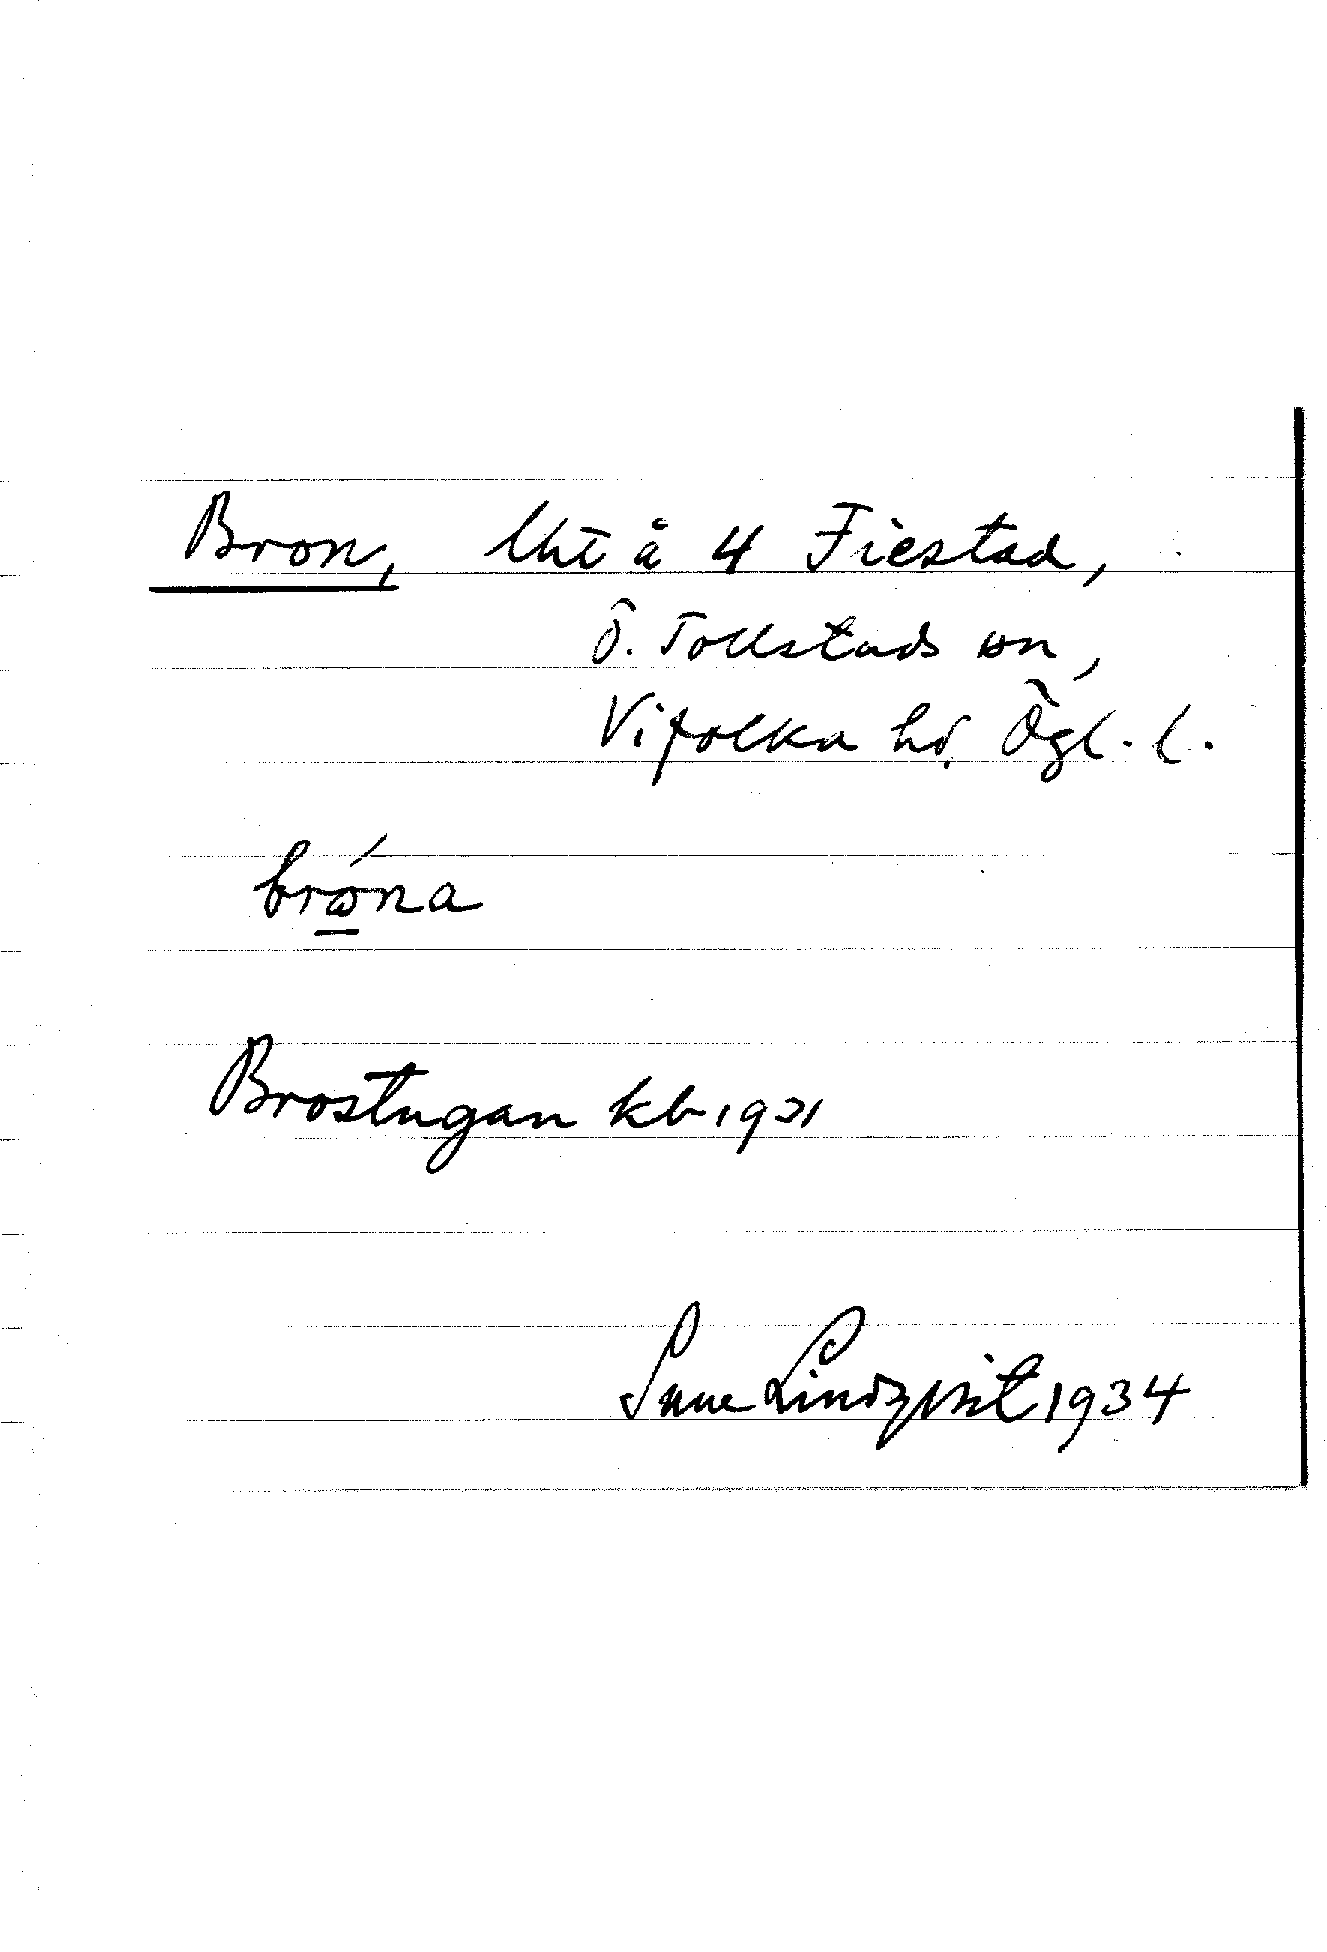 Bron, lht å 4 Fiestad,
Ö. Tollstads sn,
Vifolka hd, Ögl. l.
brǿna
Brostugan kb 1921
Sune Lindqvist 1934